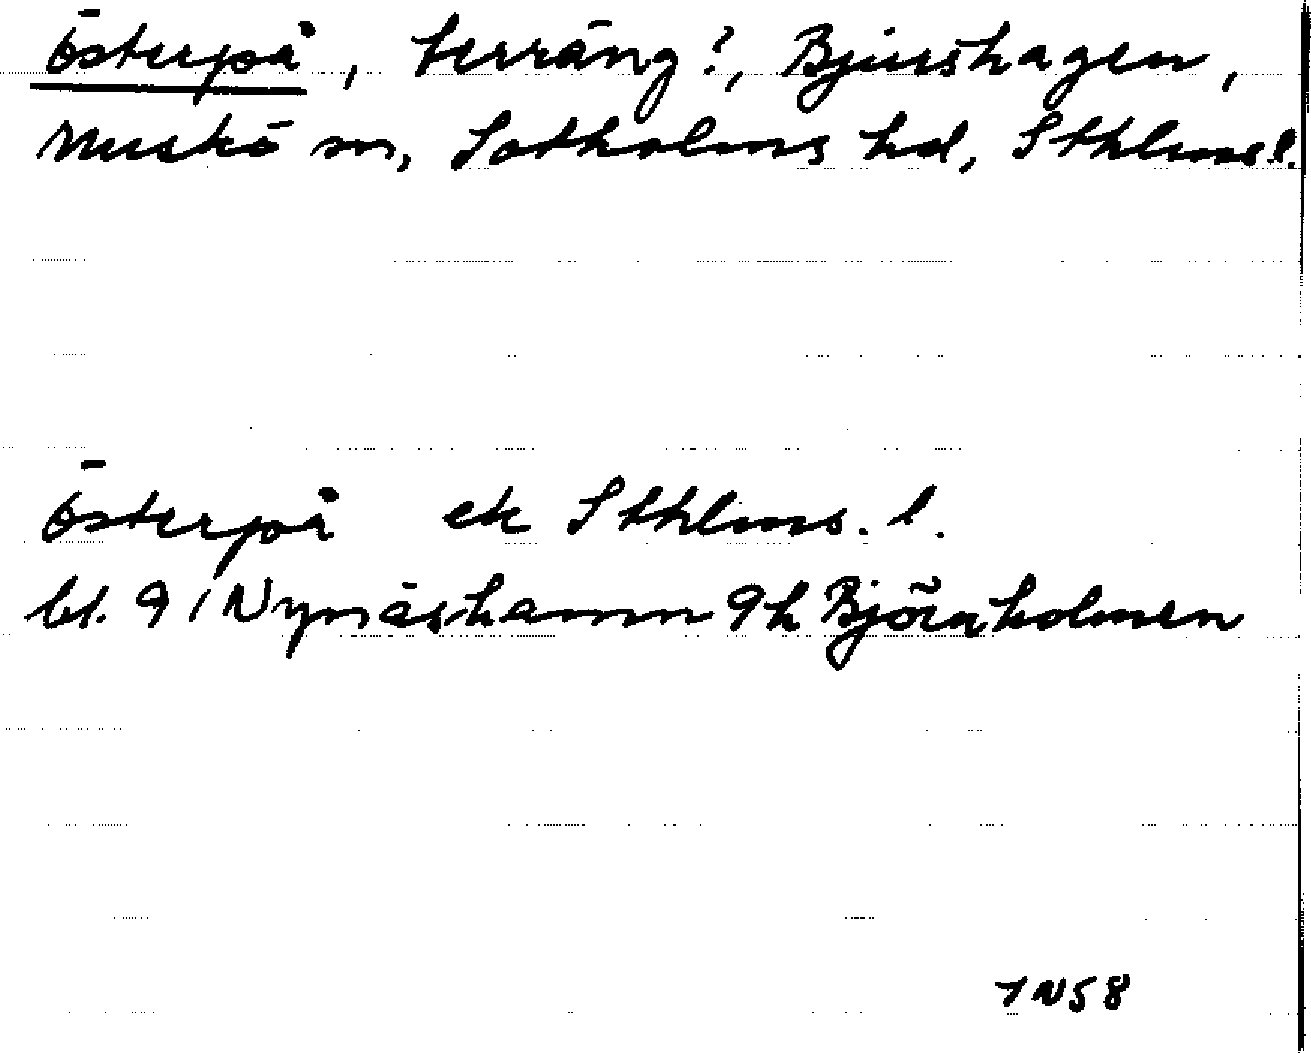 Österpå, terräng?, Bjurshagen,
Muskö sn, Sotholms hd, Sthlms l.
Österpå ek Sthlms. l.
bl. 91 Nynäshamn 9h Björnholmen
7N58